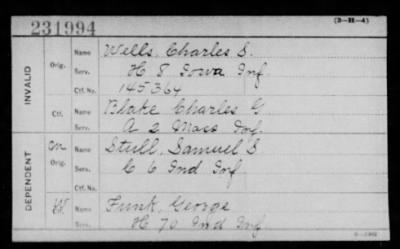 (3-H-4)
231994
INVALID
Orig. Name Wells, Charles S.
Serv. H 8 Iowa Inf
Ctf. No. 145364
Ctf. Name Blake Charles G
Serv. A 2 Mass Inf.
DEPENDENT
Orig. Name Stull, Samuel S.
Serv. C 6 Ind Inf.
Ctf. No.
Name Funk, George
Serv. H 70 Ind Inf